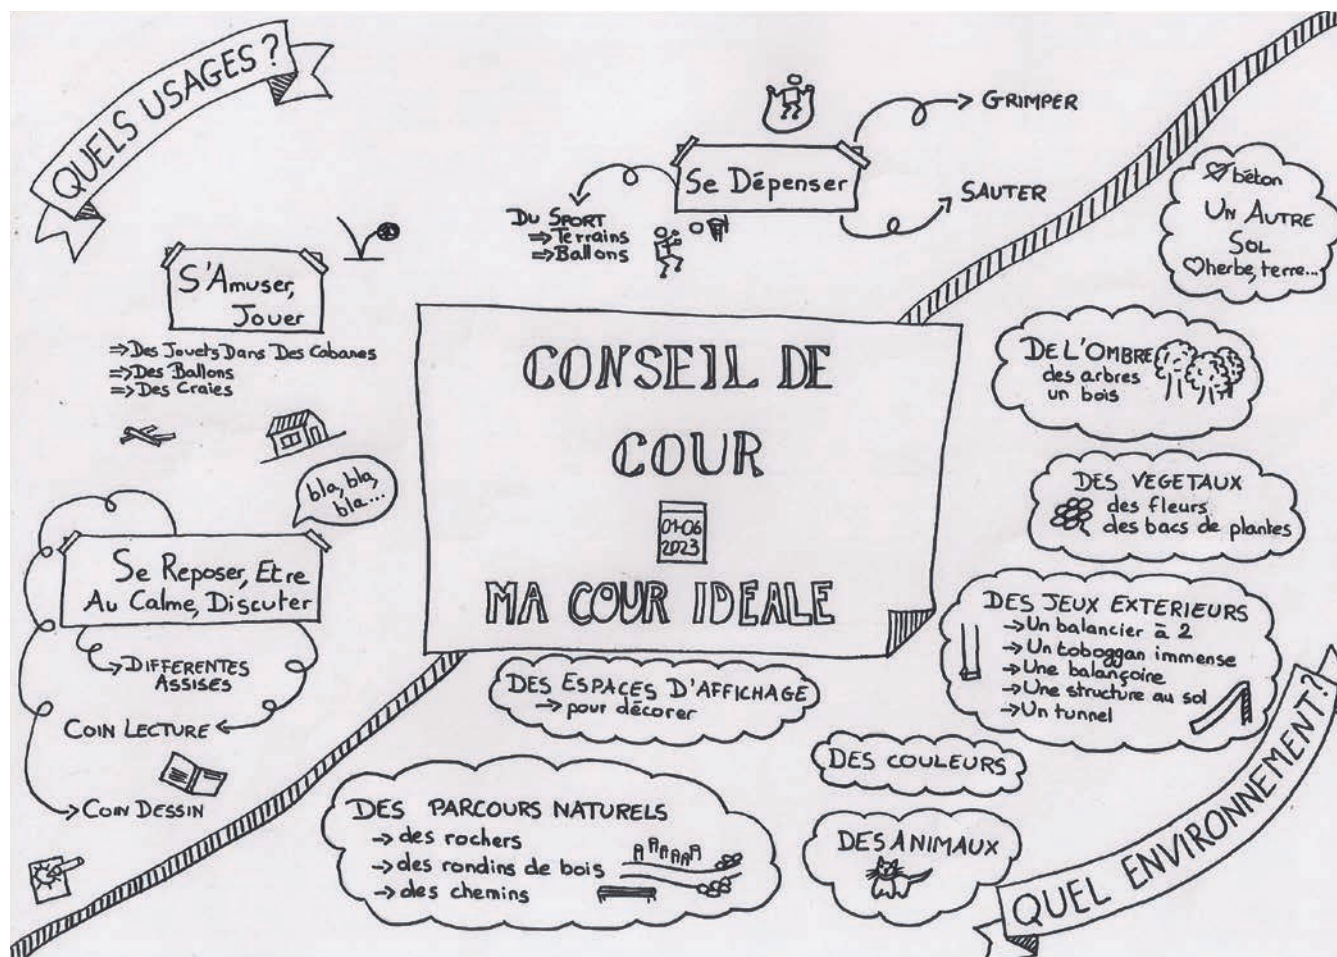 QUELS USAGES ?
Se Dépenser
GRIMPER
SAUTER
DU SPORT
⇒ Terrains
⇒ Ballons
S'Amuser,
Jouer
⇒ Des Jouets Dans Des Cabanes
⇒ Des Ballons
⇒ Des Craies
bla, bla,
bla...
Se Reposer, Etre
Au Calme, Discuter
DIFFERENTES
ASSISES
COIN LECTURE
COIN DESSIN
CONSEIL DE
COUR
01-06
2023
MA COUR IDEALE
béton
UN AUTRE
SOL
herbe, terre...
DE L'OMBRE
des arbres
un bois
DES VEGETAUX
des fleurs
des bacs de plantes
DES JEUX EXTERIEURS
→ Un balancier à 2
→ Un toboggan immense
→ Une balançoire
→ Une structure au sol
→ Un tunnel
DES ESPACES D'AFFICHAGE
→ pour décorer
DES COULEURS
DES PARCOURS NATURELS
→ des rochers
→ des rondins de bois
→ des chemins
DES ANIMAUX
QUEL ENVIRONNEMENT ?